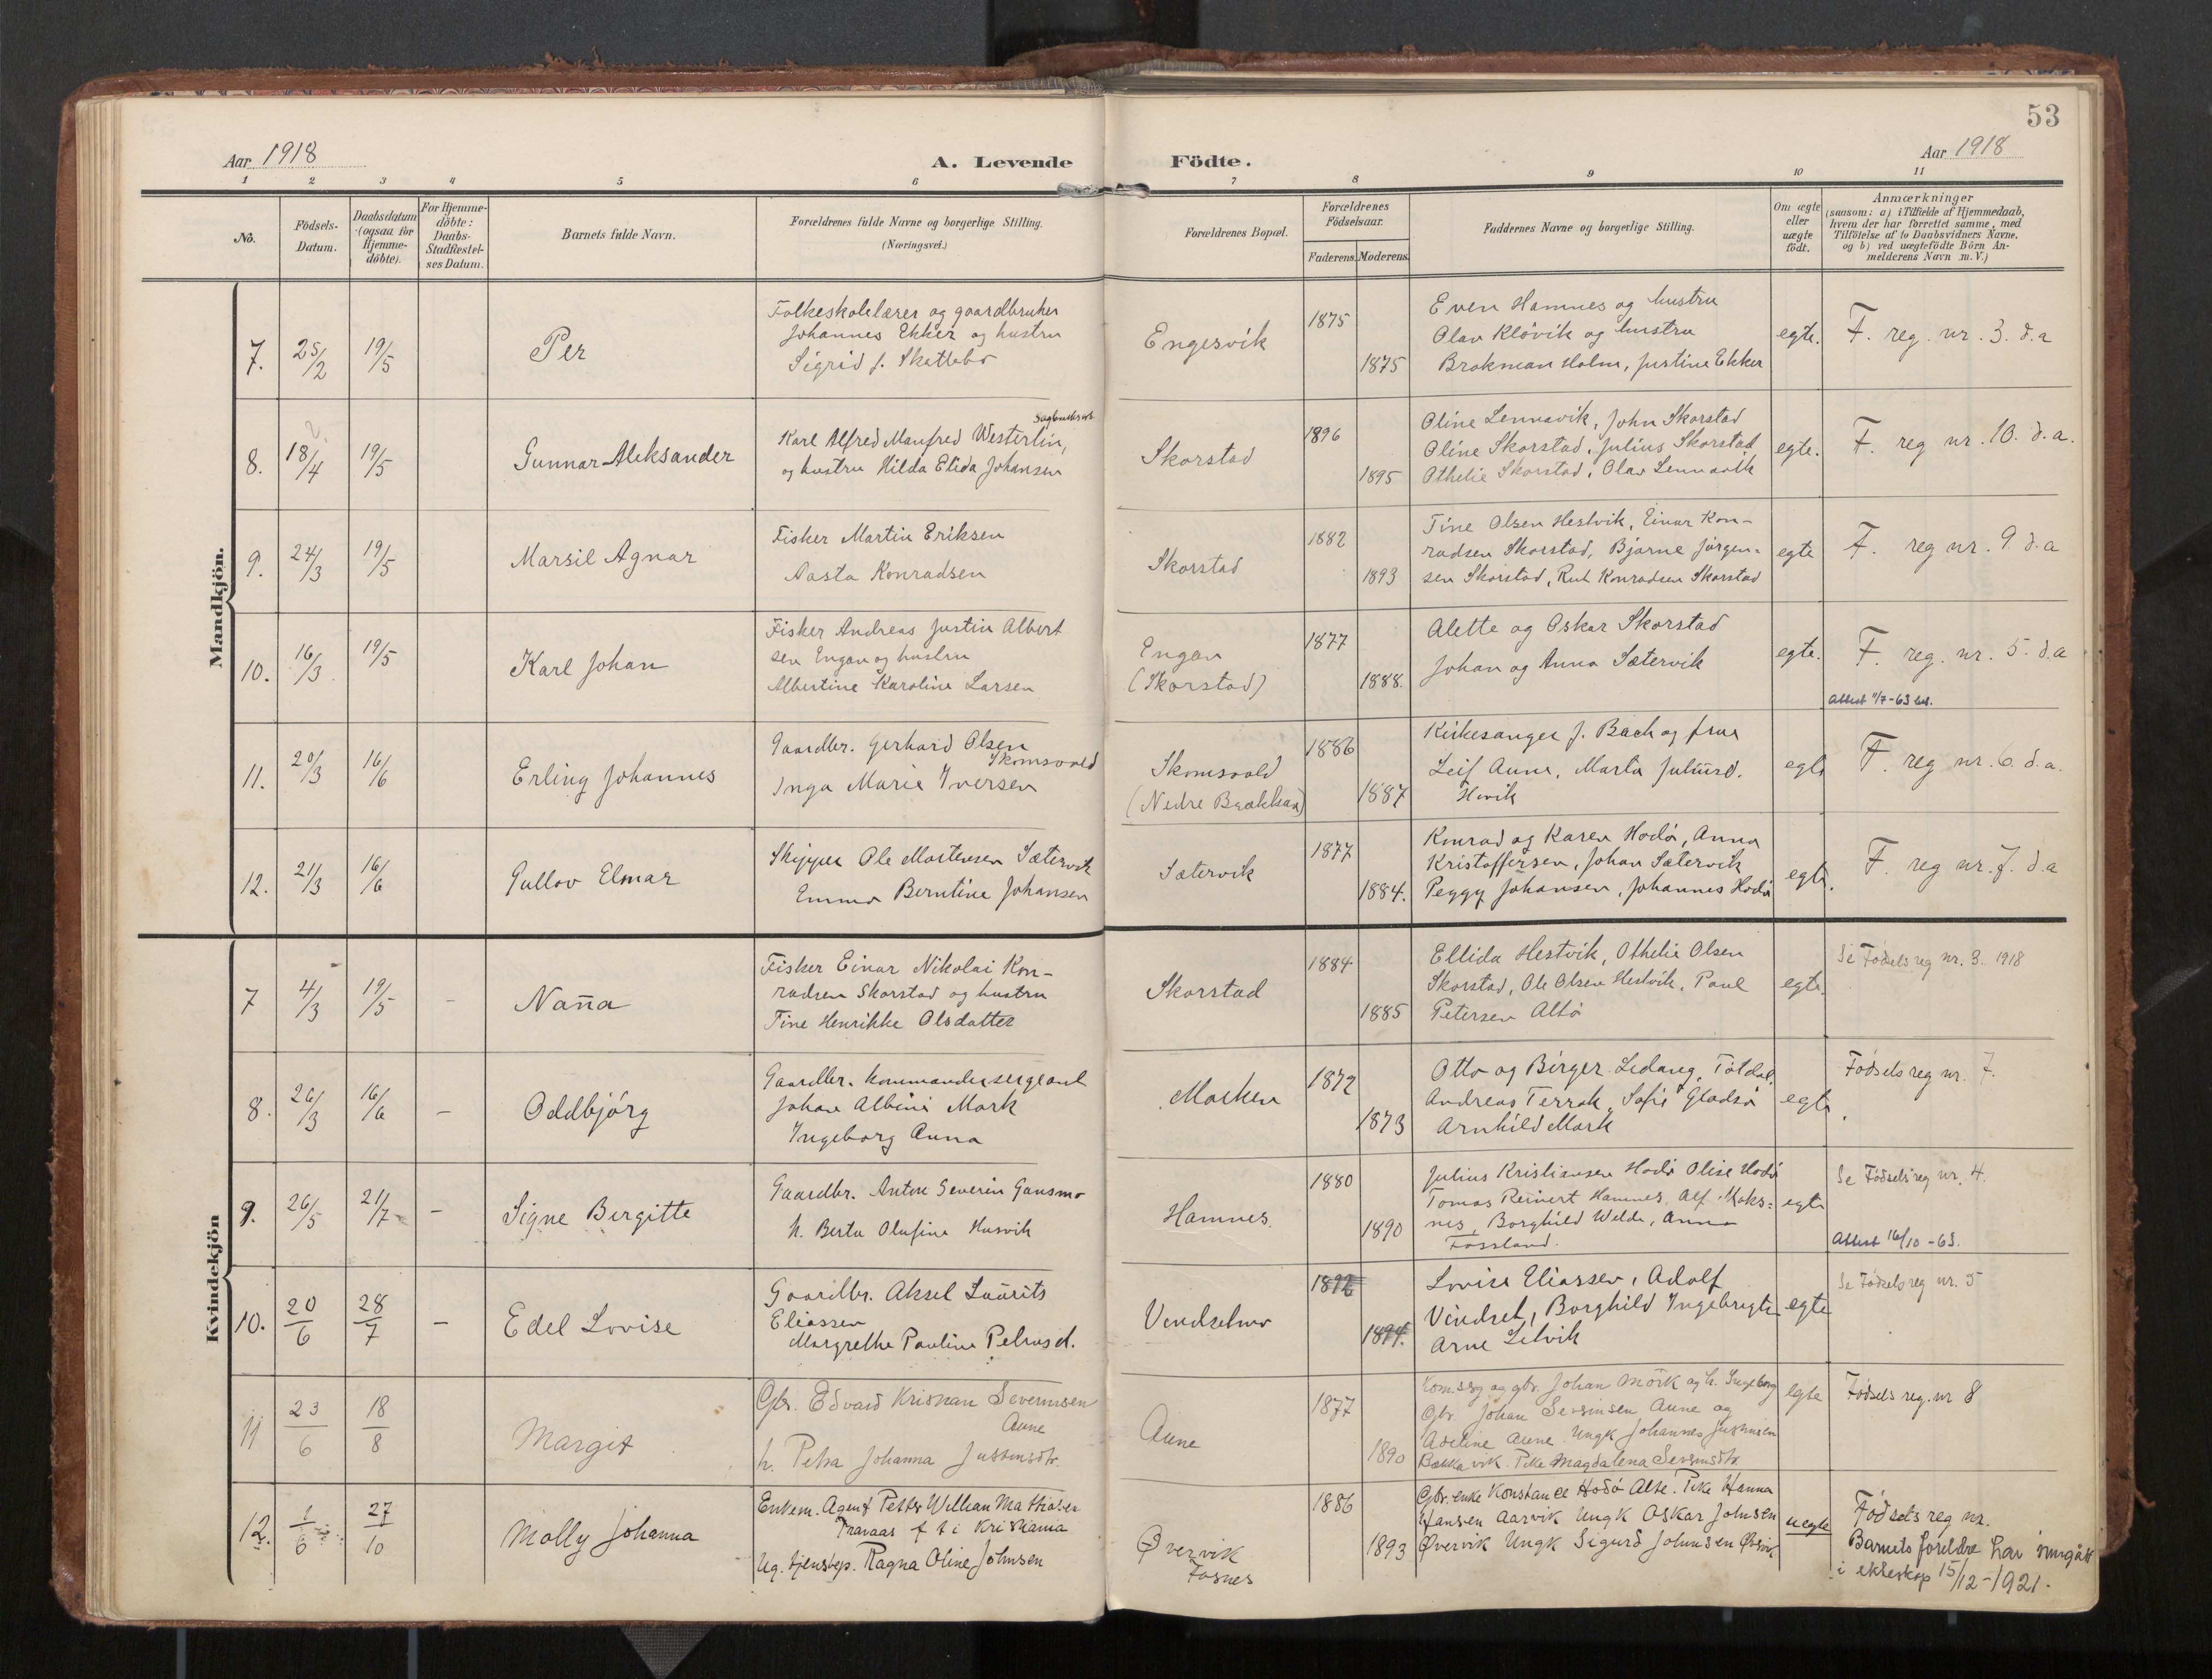 53
Aar 1918
A. Levende
Födte.
Aar 1918
1 2 3 4 5 6 7 8 9 10 11
No.
Födsels-
Datum.
Daabsdatum
(ogsaa for
Hjemme-
döbte).
For Hjemme-
döbte:
Daabs-
Stadfæstel-
ses Datum.
Barnets fulde Navn.
Forældrenes fulde Navne og borgerlige Stilling.
(Næringsvei.)
Forældrenes Bopæl.
Forældrenes
Födselsaar.
Faderens. Moderens.
Faddernes Navne og borgerlige Stilling.
Om ægte
eller
uægte
födt.
Anmærkninger
(saasom: a) i Tilfælde af Hjemmedaab,
hvem der har forrettet samme, med
Tilföielse af to Daabsvidners Navne,
og b) ved uægtefödte Börn An-
melderens Navn m.V.)
Mandkjön.
7.
25/2
19/5
Per
Folkeskolelærer og gaardbruker
Johannes Ekker og hustru
Sigrid f. Skattebo
Engesvik
1875
1875
Even Hamnes og hustru
Olav Kløvik og hustru
Brokman Holm, Justine Ekker
egte.
F. reg. nr. 3. d.a
8.
18/4
19/5
Gunnar Aleksander
Sagbruksarb.
Karl Alfred Manfred Westerlin,
og hustru Hilda Elida Johansen
Skorstad
1896
1895
Oline Lennavik, John Skorstad
Oline Skorstad, Julius Skorstad
Othelie Skorstad, Olav Lennavik
egte.
F. reg nr. 10. d.a.
9.
24/3
19/5
Marsil Agnar
Fisker Martin Eriksen
Aasta Konradsen
Skorstad
1882
1893
Tine Olsen Hestvik, Einar Kon-
radsen Skorstad, Bjarne Jørgen-
sen Skorstad, Rut Konradsen Skorstad
egte
F. reg nr. 9. d.a
10.
16/3
19/5
Karl Johan
Fisker Andreas Justin Albert
sen Engan og hustru
Albertine Karoline Larsen
Engan
(Skorstad)
1877
1888.
Alette og Oskar Skorstad
Johan og Anna Sætervik
egte.
F. reg. nr. 5. d.a
Attest 11/7-63
11.
20/3
16/6
Erling Johannes
Gaardbr. Gerhard Olsen
Skomsvold
Inga Marie Iversen
Skomsvold
(Nedre Brækkan)
1886
1887
Kirkesanger J. Bach og frue
Leif Aune, Marta Juliusd.
Hovik
egte
F. reg nr. 6. d.a.
12.
21/3
16/6
Gullov Elmar
Skipper Ole Mortensen Sætervik
Emma Berntine Johansen
Sætervik
1877
1884.
Konrad og Karen Hodø, Anna
Kristoffersen, Johan Sætervik
Peggy Johansen, Johannes Hodø
egte.
F. reg nr. 7. d.a
Kvindekjön
7
4/3
19/5
-
Nan̄a
Fisker Einar Nikolai Kon-
radsen Skorstad og hustru
Tine Henrikke Olsdatter
Skorstad
1884
1885
Ellida Hestvik, Othelie Olsen
Skorstad, Ole Olsen Hestvik, Paul
Petersen Altø
egte.
Se Fødselsreg nr. 3. 1918
8.
26/3
16/6
-
Oddbjørg
Gaardbr. kommandersergeant
Johan Albini Mørk
Ingeborg Anna
Marken
1872
1873
Otto og Birger Ledang, Totdal,
Andreas Terrak, Sofie Gladsø
Arnhild Mørk
egte.
Fødselsreg nr. 7.
9.
26/5
21/7
-
Signe Bergitte
Gaardbr. Anton Severin Gansmo
h. Berta Olufine Husvik
Hamnes.
1880
1890
Julius Kristiansen Hodø Olise Hodø
Tomas Reinert Hamnes, Alf Moks-
nes, Borghild Welde, Anna
Fossland.
egte
Se Fødselsreg nr. 4.
Attest 16/10-63.
10.
20/6
28/7
-
Edel Lovise
Gaardbr. Aksel Laurits
Eliassen
Margrethe Pauline Petrusd.
Vendselmo
1892
1894.
Lovise Eliassen, Adolf
Vendset, Borghild Ingebrigts
Arne Lilvik
egte
Se Fødselsreg nr. 5
11
23/6
18/8
Margit
Gbr. Edvard Kristian Severinsen
Aune
h. Petra Johanna Justinsdtr.
Aune
1877
1890
Komserg og gbr. Johan Mörk og h. Ingeborg
Gbr. Johan Seversinsen Aune og
Adeline Aune. Ungk Johannes Justinsen
Bækkavik. Pike Magdalena Seversinsdtr.
egte
Fødsels reg. nr 8
12.
1/6
27/10
Molly Johanna
Enkem. Agent Petter William Mathisen
Travaas f i Kristiania
Ug. tjenstep. Ragna Oline Johnsen
Øvervik
Fosnes
1886
1893
Gbr. enke Konstance Hodø Altø. Pike Hanna
Hansen Aarvik Ungk Oskar Johnsen
Øvervik Ungk Sigurd Johnsen Øvervik
uegte
Fødsels reg nr.
Barnets foreldre har inngått
i ekteskap 15/12-1921.